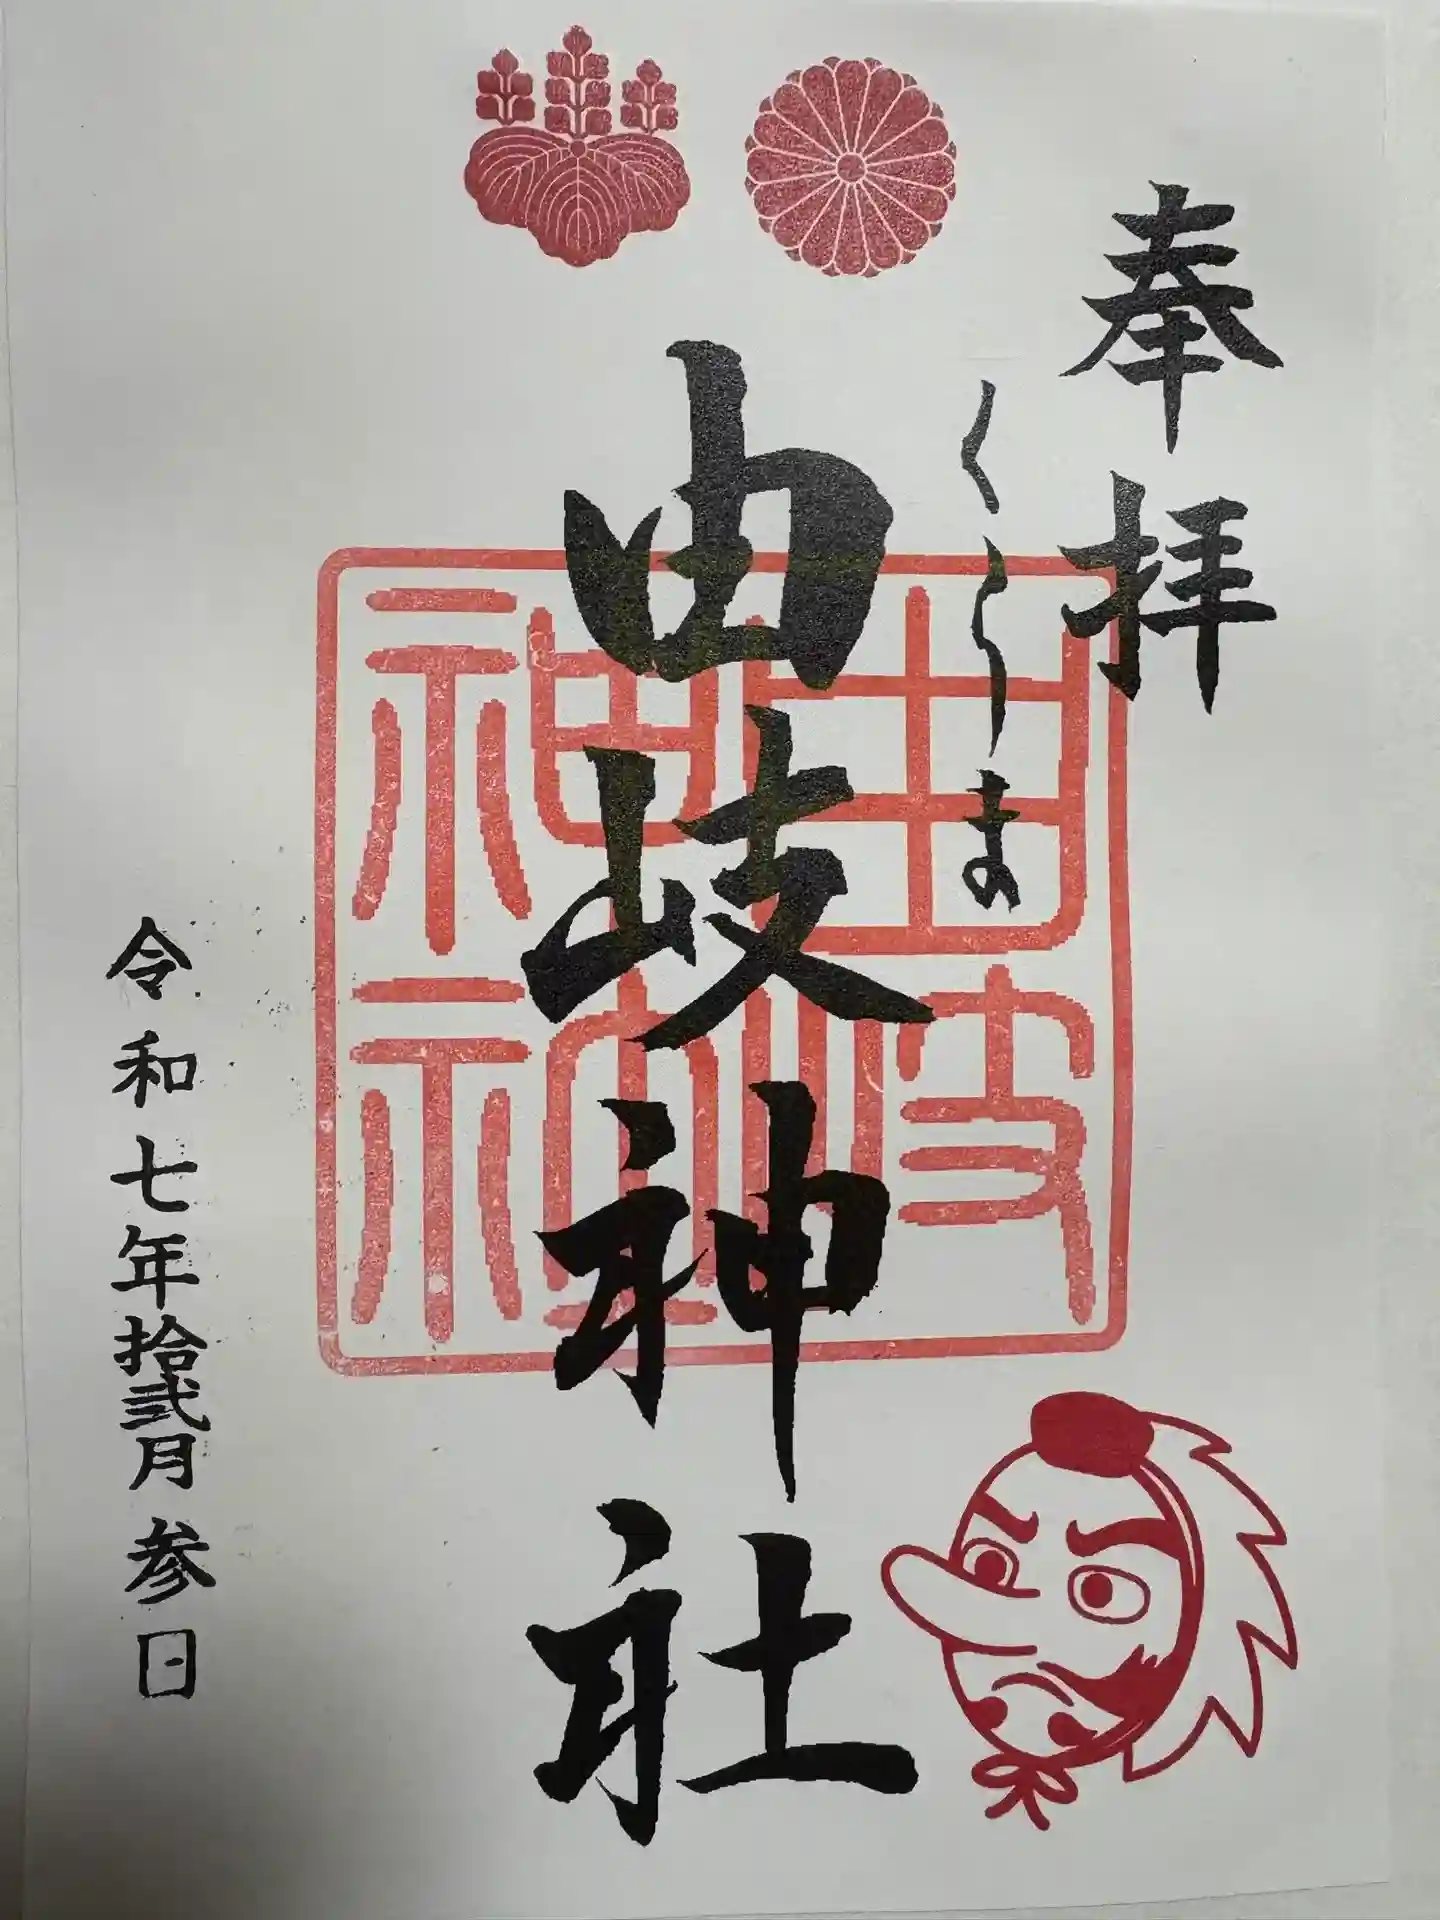 奉拝
くらま
由岐神社
由岐神社
令和七年拾弐月参日